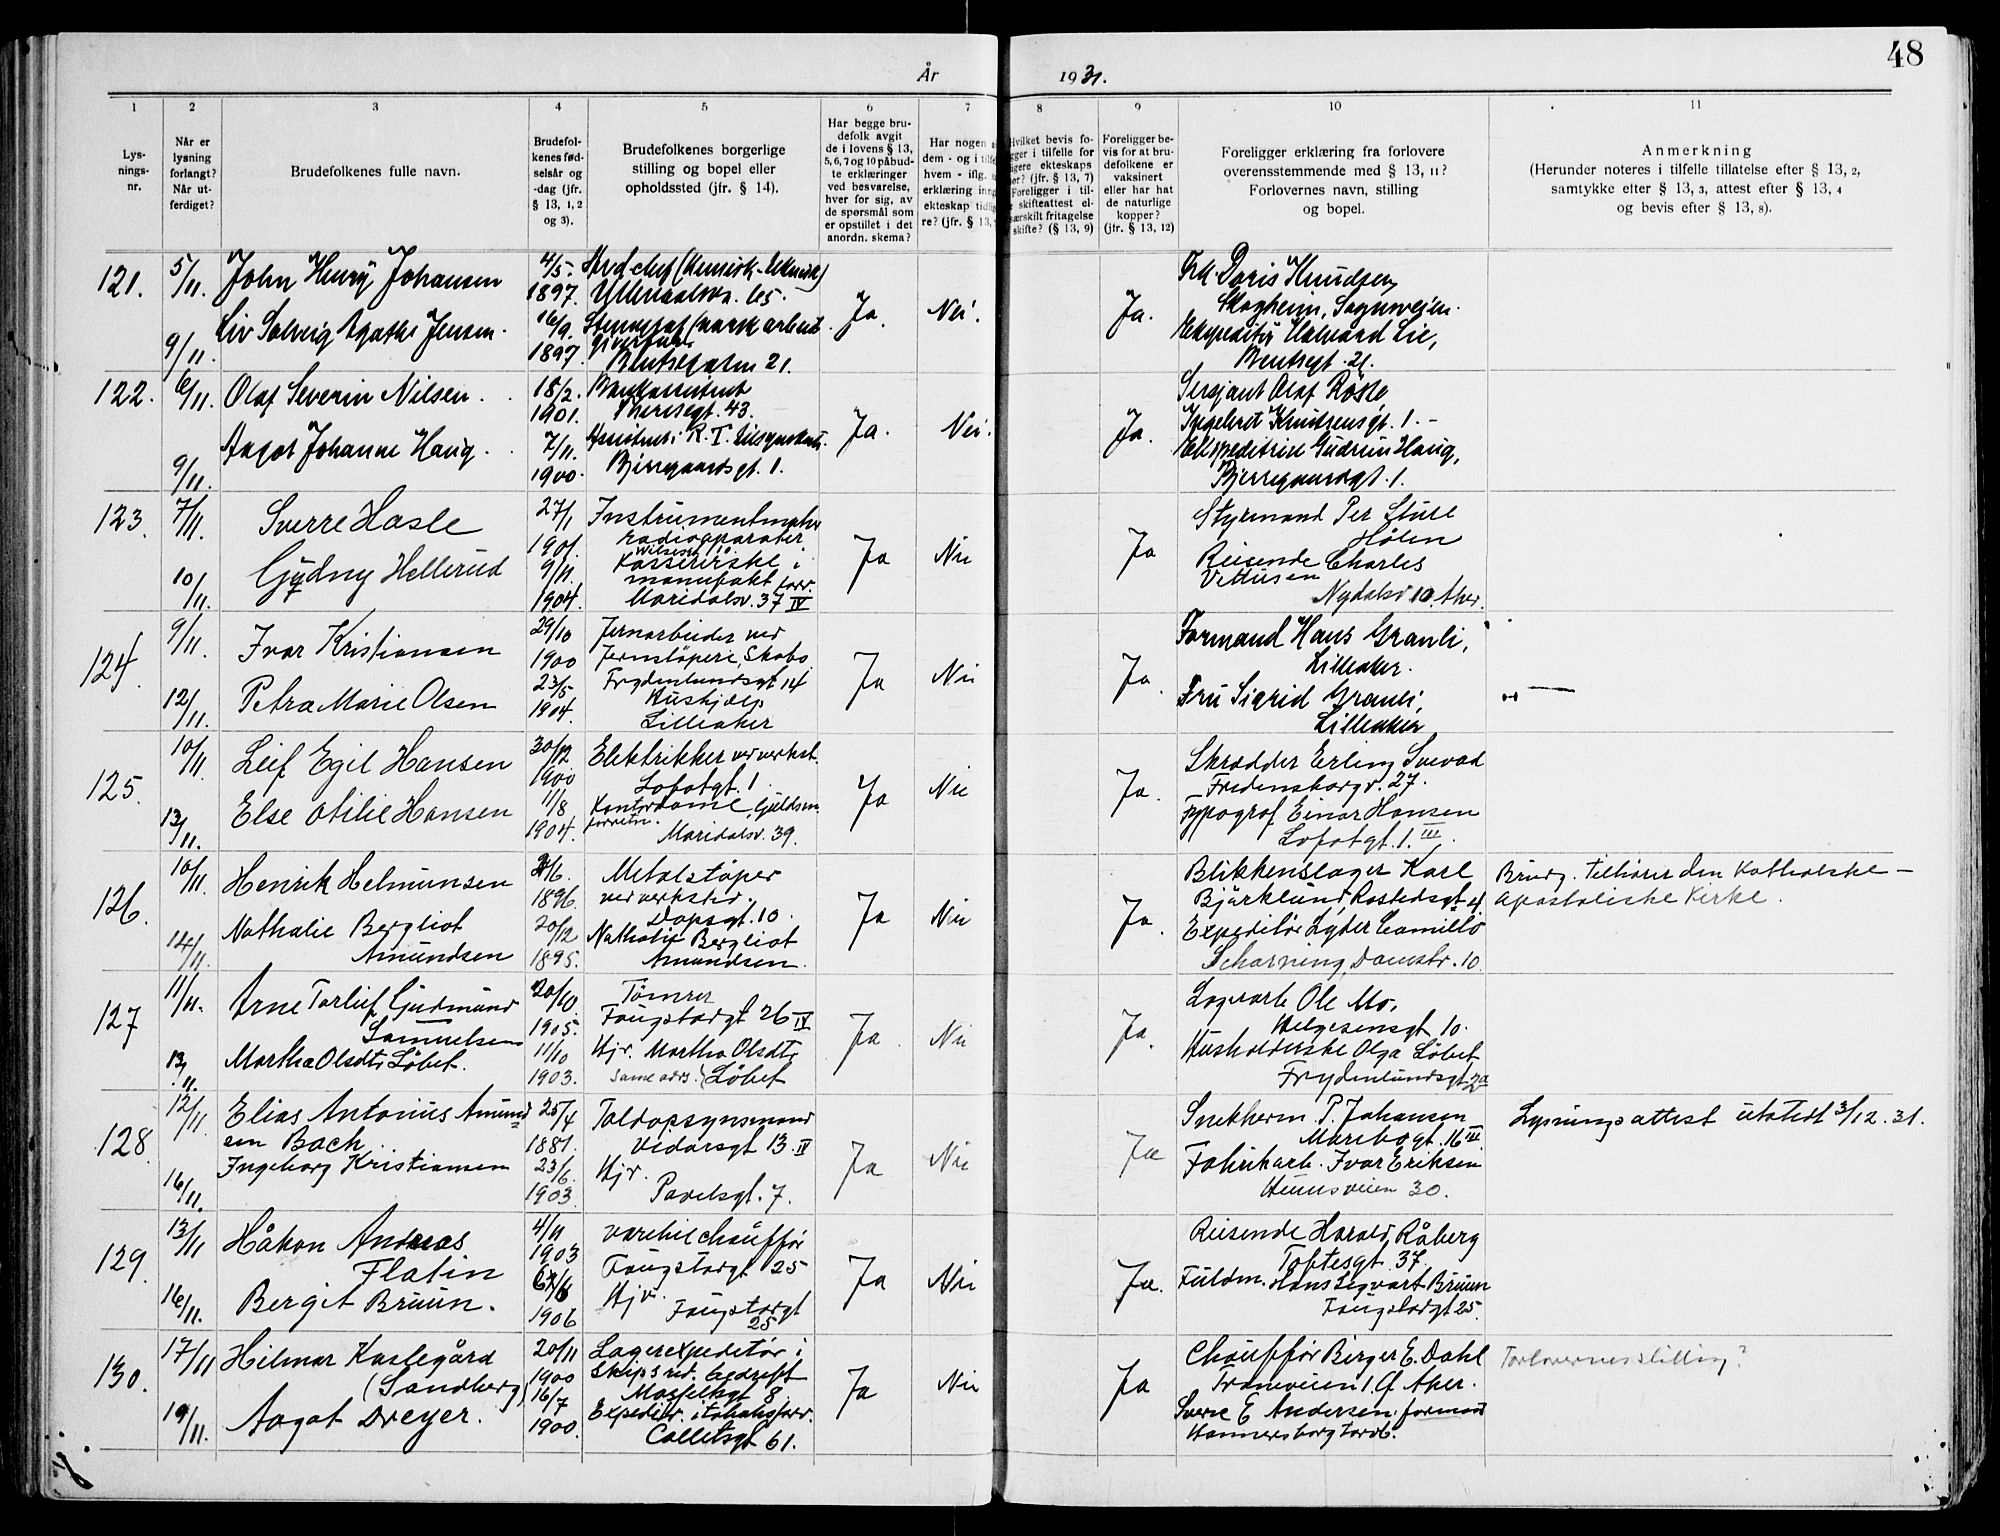 48
År 1931.
1 2 3 4 5 6 7 8 9 10 11
Lys-
nings-
nr.
Når er
lysning
forlangt?
Når ut-
ferdiget?
Brudefolkenes fulle navn.
Brudefol-
kenes fød-
selsår og
-dag (jfr.
§ 13, 1, 2
og 3).
Brudefolkenes borgerlige
stilling og bopel eller
opholdssted (jfr. § 14).
Har begge bru-
defolk avgit
de i lovens § 13,
5, 6, 7 og 10 påbud-
te erklæringer
ved besvarelse,
hver for sig, av
de spørsmål som
er opstillet i det
anordn. skema?
Har nogen
dem - og i tilf
hvem - iflg.
erklæring inn
ekteskap tidli
re? (jfr. § 13,
Hvilket bevis fo-
gger i tilfelle for
igere ekteskaps
er? (jfr. § 13, 7)
Foreligger i til-
skifteattest el-
særskilt fritagelse
skifte? (§ 13, 9)
Foreligger be-
vis for at bru-
defolkene er
vaksinert
eller har hat
de naturlige
kopper?
(jfr. § 13, 12)
Foreligger erklæring fra forlovere
overensstemmende med § 13, 11?
Forlovernes navn, stilling
og bopel.
Anmerkning
(Herunder noteres i tilfelle tillatelse efter § 13, 2,
samtykke efter § 13, 3, attest efter § 13, 4
og bevis efter § 13, 8).
121. 5/11. John Henry Johansen 4/5. 1897.
9/11. Liv Solveig Agathe Jensen. 16/9. 1897.
Ullevaalsvn. 65.
Bentsegaten 21.
Ja. Nei. Ja.
Frk. Doris Knudsen,
Skogheim, Sognsveien.
Ekspeditør Halvard Lie,
Bentsegt. 21.
122. 6/11. Olaf Severin Nilsen. 18/2. 1901.
9/11. Aagot Johanne Haug. 7/11. 1900.
Bankassistent
Theresegt. 43.
Bjerregaardsgt. 1.
Ja. Nei. Ja.
Sersjant Olaf Røste,
Ingelbret Knudsensgt. 1. -
Ekspeditrise Gudrun Haug,
Bjerregaardsgt. 1.
123. 7/11. Sverre Hasle 27/1 1901.
10/11. Gydny Hellerud 9/11. 1904.
Instrumentmaker
radioapparater
Kassererske i
manufakt forr.
Maridalsv. 37 IV
Ja Nei Ja
Styrmand Per Sture
Hölen
Reisende Charles
Vettusen
Nydalsv 10. Aker.
124. 9/11. Ivar Kristiansen 29/10 1900
12/11. Petra Marie Olsen 23/5 1904.
Jernarbeider ved
Jernstöperi, Skabo
Frydenlundsgt 14
Hushjelp
Lilleaker
Ja Nei Ja.
Formand Hans Granli,
Lilleaker.
Fru Sigrid Granli,
Lilleaker
125. 10/11. Leif Egil Hansen 30/12 1900
13/11. Else Otilie Hansen 11/8 1904.
Elektrikker ved verkst.
Lofotgt. 1
Kontordame, Guldsm.
forretn.
Maridalsv. 39.
Ja Nei Ja.
Skrædder Erling Svevad
Fredensborgv. 27.
Typograf Einar Hansen
Lofotgt. 1. III
126. 10/11. Henrik Helmunsen /6. 1896.
14/11. Nathalie Bergliot
Amundsen 20/12 1895.
Metalstöper
ved verksted.
Dopsgt. 10.
Nathalie Bergliot
Amundsen.
Ja Nei Ja.
Blikkenslager Karl
Bjärklund, Rostedsgt 4.
Expeditör Lyder Camillo
Scharning, Damstr. 10
Brudg. tilhører den katholske -
apostoliske kirke.
127 11/11. Arne Torleif Gudmund
Samuelsen 20/10. 1905.
13/11. Martha Olsdt. Löbet. 11/10 1903.
Tömrer
Fougstadgt 26 IV
Hjv. Martha Olsdt.
same adrs. Löbet
Ja. Nei Ja.
Lagerarb Ole Mo,
Helgesensgt 10.
Husholderske Olga Löbet
Frydenlundsgt 2a
128. 12/11. Elias Antonius Amund
sen Bach. 25/4 1881.
16/11. Ingeborg Kristiansen 23/6. 1903.
Toldopsynsmand
Vidarsgt 13. IV
Hjv.
Pavelsgt. 7.
Ja Nei Ja
Snekkerm P. Johansen
Maribogt. 16 III
Fabrikarb. Ivar Eriksen
30.
Lysningsattest utstedt 3/12. 31.
129. 13/11 Håkon Andreas
Flatin 4/11 1903
16/11. Bergit Bruun. 1906
varebilchauffør
Fougstadgt 25
Hjv.
Fougstadgt
25
Ja Nei Ja.
Reisende Harald Råberg
Toftesgt. 37.
Fuldm. Hans Segvart Bruun
Fougstadgt 25.
130. 17/11 Hilmar Kaslegård
(Sandberg) 20/11 1900
19/11. Aagot Dreyer. 16/7 1900.
Lagerexpeditör i
skipsred. bedrift
Marselisgt 8.
Expeditr. i tobaksforr.
Colletsgt 61.
Ja Nei Ja
Chauffør Birger E. Dahl
Traneveien 1. Aker.
Sverre E Andersen, formand
Forloverens stilling?